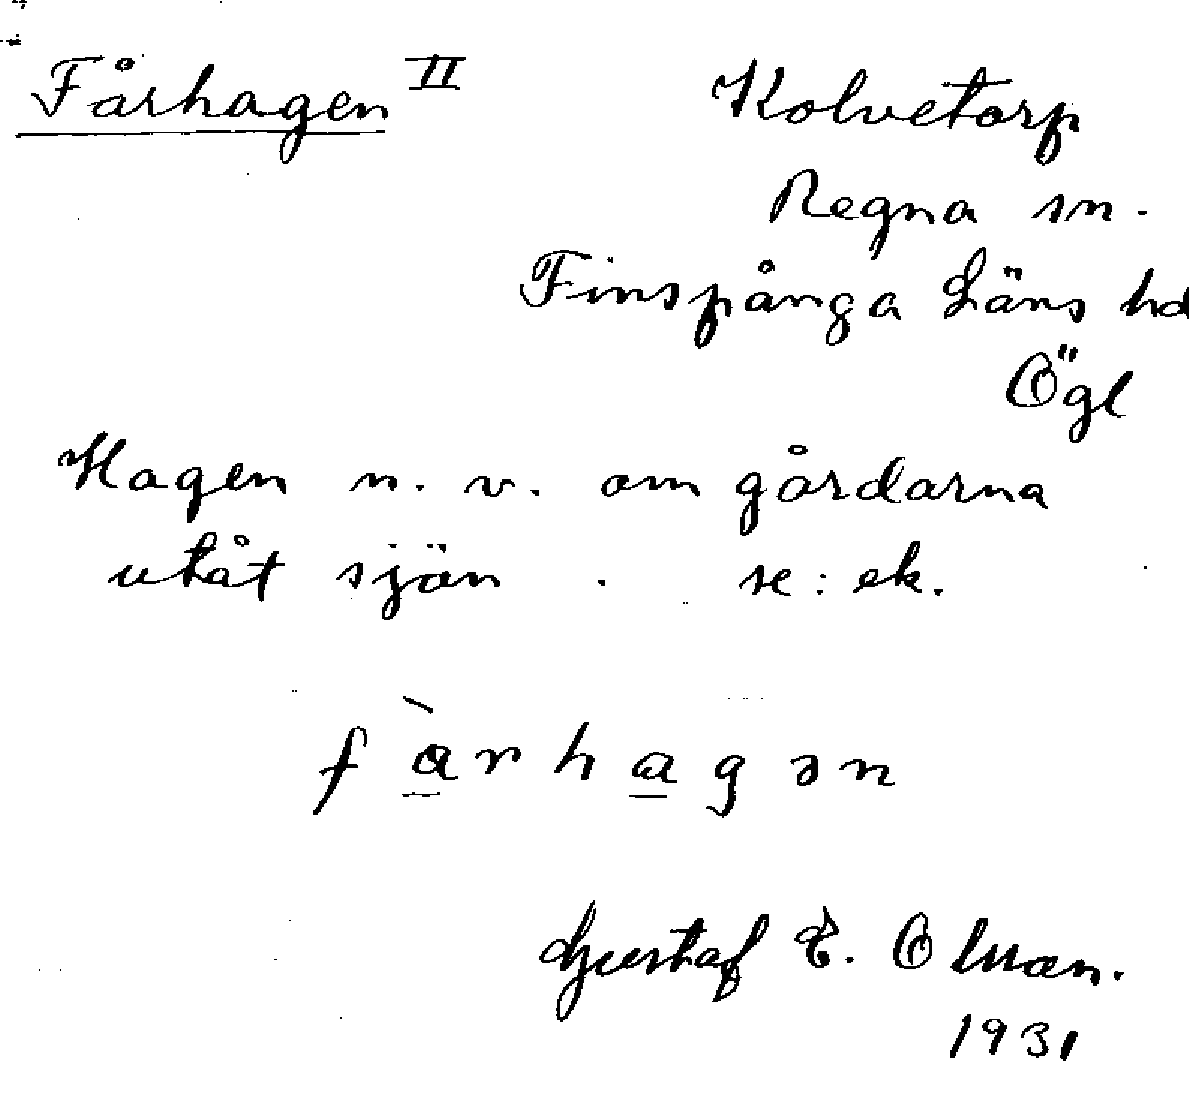 Fårhagen II
Kolvetorp
Regna sn.
Finspånga Läns hd
Ögl
Hagen n. v. om gårdarna
utåt sjön. se: ek.
fàrhagən
Gustaf E. Olman.
1931